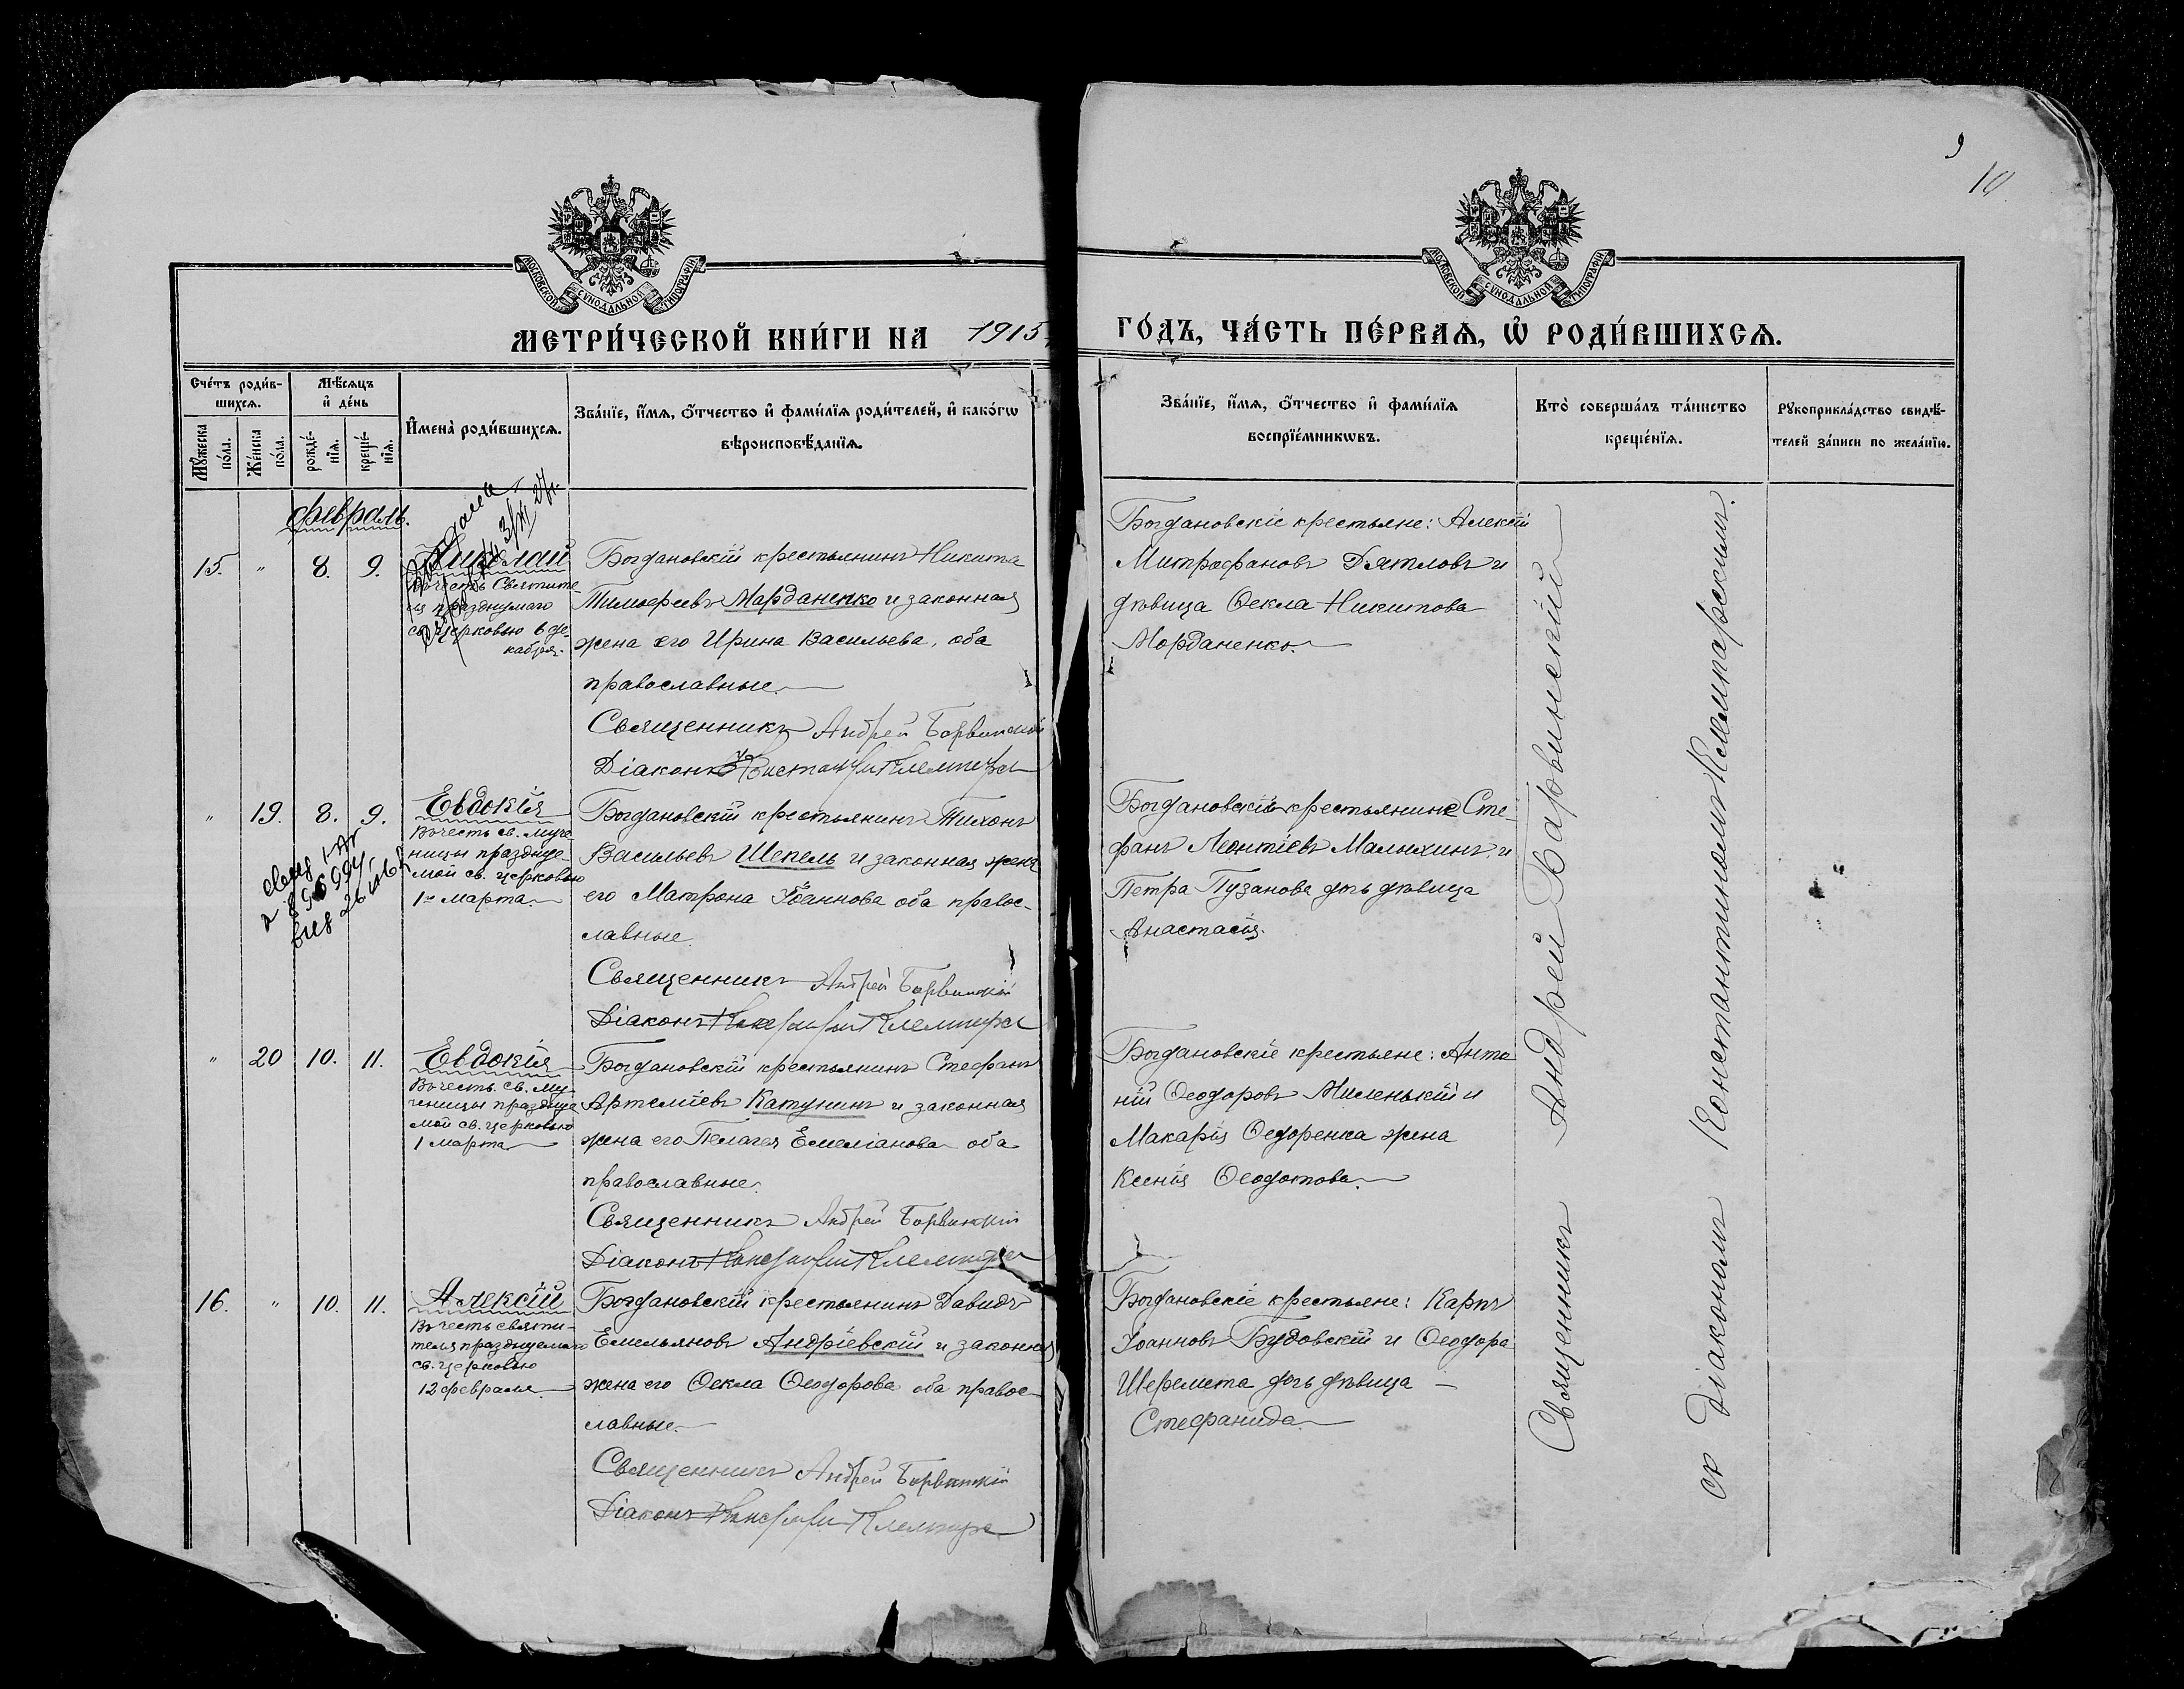 9
10
МОСКОВСКОЙ СѴНОДАЛЬНОЙ ТИПОГРАФІИ
МОСКОВСКОЙ СѴНОДАЛЬНОЙ ТИПОГРАФІИ
МЕТРИ́ЧЕСКОЙ КНИ́ГИ НА 1915
ГО́ДЪ, ЧА́СТЬ ПЕ́РВАѦ, Ѡ҆ РОДИ́ВШИХСѦ.
Сче́тъ роди́в-
шихсѧ.
Мѣ́сѧцъ
и҆ де́нь
Мꙋ́жеска
по́ла.
Же́нска
по́ла.
рожде́-
нїѧ.
креще́-
нїѧ.
И҆мена̀ роди́вшихсѧ.
Зва́нїе, и҆́мѧ, ѻ҆́тчество и҆ фамѝлїѧ роди́телей, и҆ како́гѡ
вѣроисповѣ́данїѧ.
Зва́нїе, и҆́мѧ, ѻ҆́тчество и҆ фамѝлїѧ
воспрїе́мникѡвъ.
Кто̀ соверша́лъ та́инство
креще́нїѧ.
Рꙋкоприкла́дство свидѣ́-
телей за́писи по жела́нїю.
Февраль.
15. " 8. 9.
Николай
Въ честь Святите
ля празднуемаго
св. церковью 6 де-
кабря.
Богдановскій крестьянинъ Никита
Тимофеевъ Марданенко и законная
жена его Ирина Васильева, оба
православные.
Священникъ Андрей Барвинскій
Діаконъ
Богдановскіе крестьяне: Алексій
Митрофановъ Дятловъ и
дѣвица Ѳекла Никитова
Морданенко.
" 19. 8. 9.
Евдокія
Въ честь св. муче
ницы праздну-
мой св. церковью
1го марта.
Богдановскій крестьянинъ Тихонъ
Васильевъ Шепель и законная жена
его Матрона Іоаннова оба правос-
лавные.
Священникъ Андрей Барвинскій
Діаконъ
Богдановскій крестьянинъ Сте-
фанъ Леонтіевъ Малыхинъ, и
Петра Пузанова дочь дѣвица
Анастасія.
" 20 10. 11.
Евдокія
Въ честь св. му-
ченицы праздну
мой св. церковью
1 марта.
Богдановскій крестьянинъ Стефанъ
Артеміевъ Катунинъ и законная
жена его Пелагея Емеліанова оба
православные.
Священникъ Андрей Барвинскій
Діаконъ
Богдановскіе крестьяне: Анто
ній Ѳеодоровъ Миленькій и
Макарія Ѳедоренка жена
Ксенія Ѳеодотова.
16. " 10. 11.
Алексій
Въ честь святи-
теля празднуемаго
св. церковью
12 февраля.
Богдановскій крестьянинъ Давидъ
Емельяновъ Андріевскій и законная
жена его Ѳекла Ѳеодорова оба правос-
лавные.
Священникъ Андрей Барвинскій
Діаконъ
Богдановскіе крестьяне: Карпъ
Іоанновъ Будовскій и Ѳеодора
Шеремета дочь дѣвица
Стефанида.
Священникъ Андрей Барвинскій
съ Діакономъ Константиномъ Клемпарскимъ.